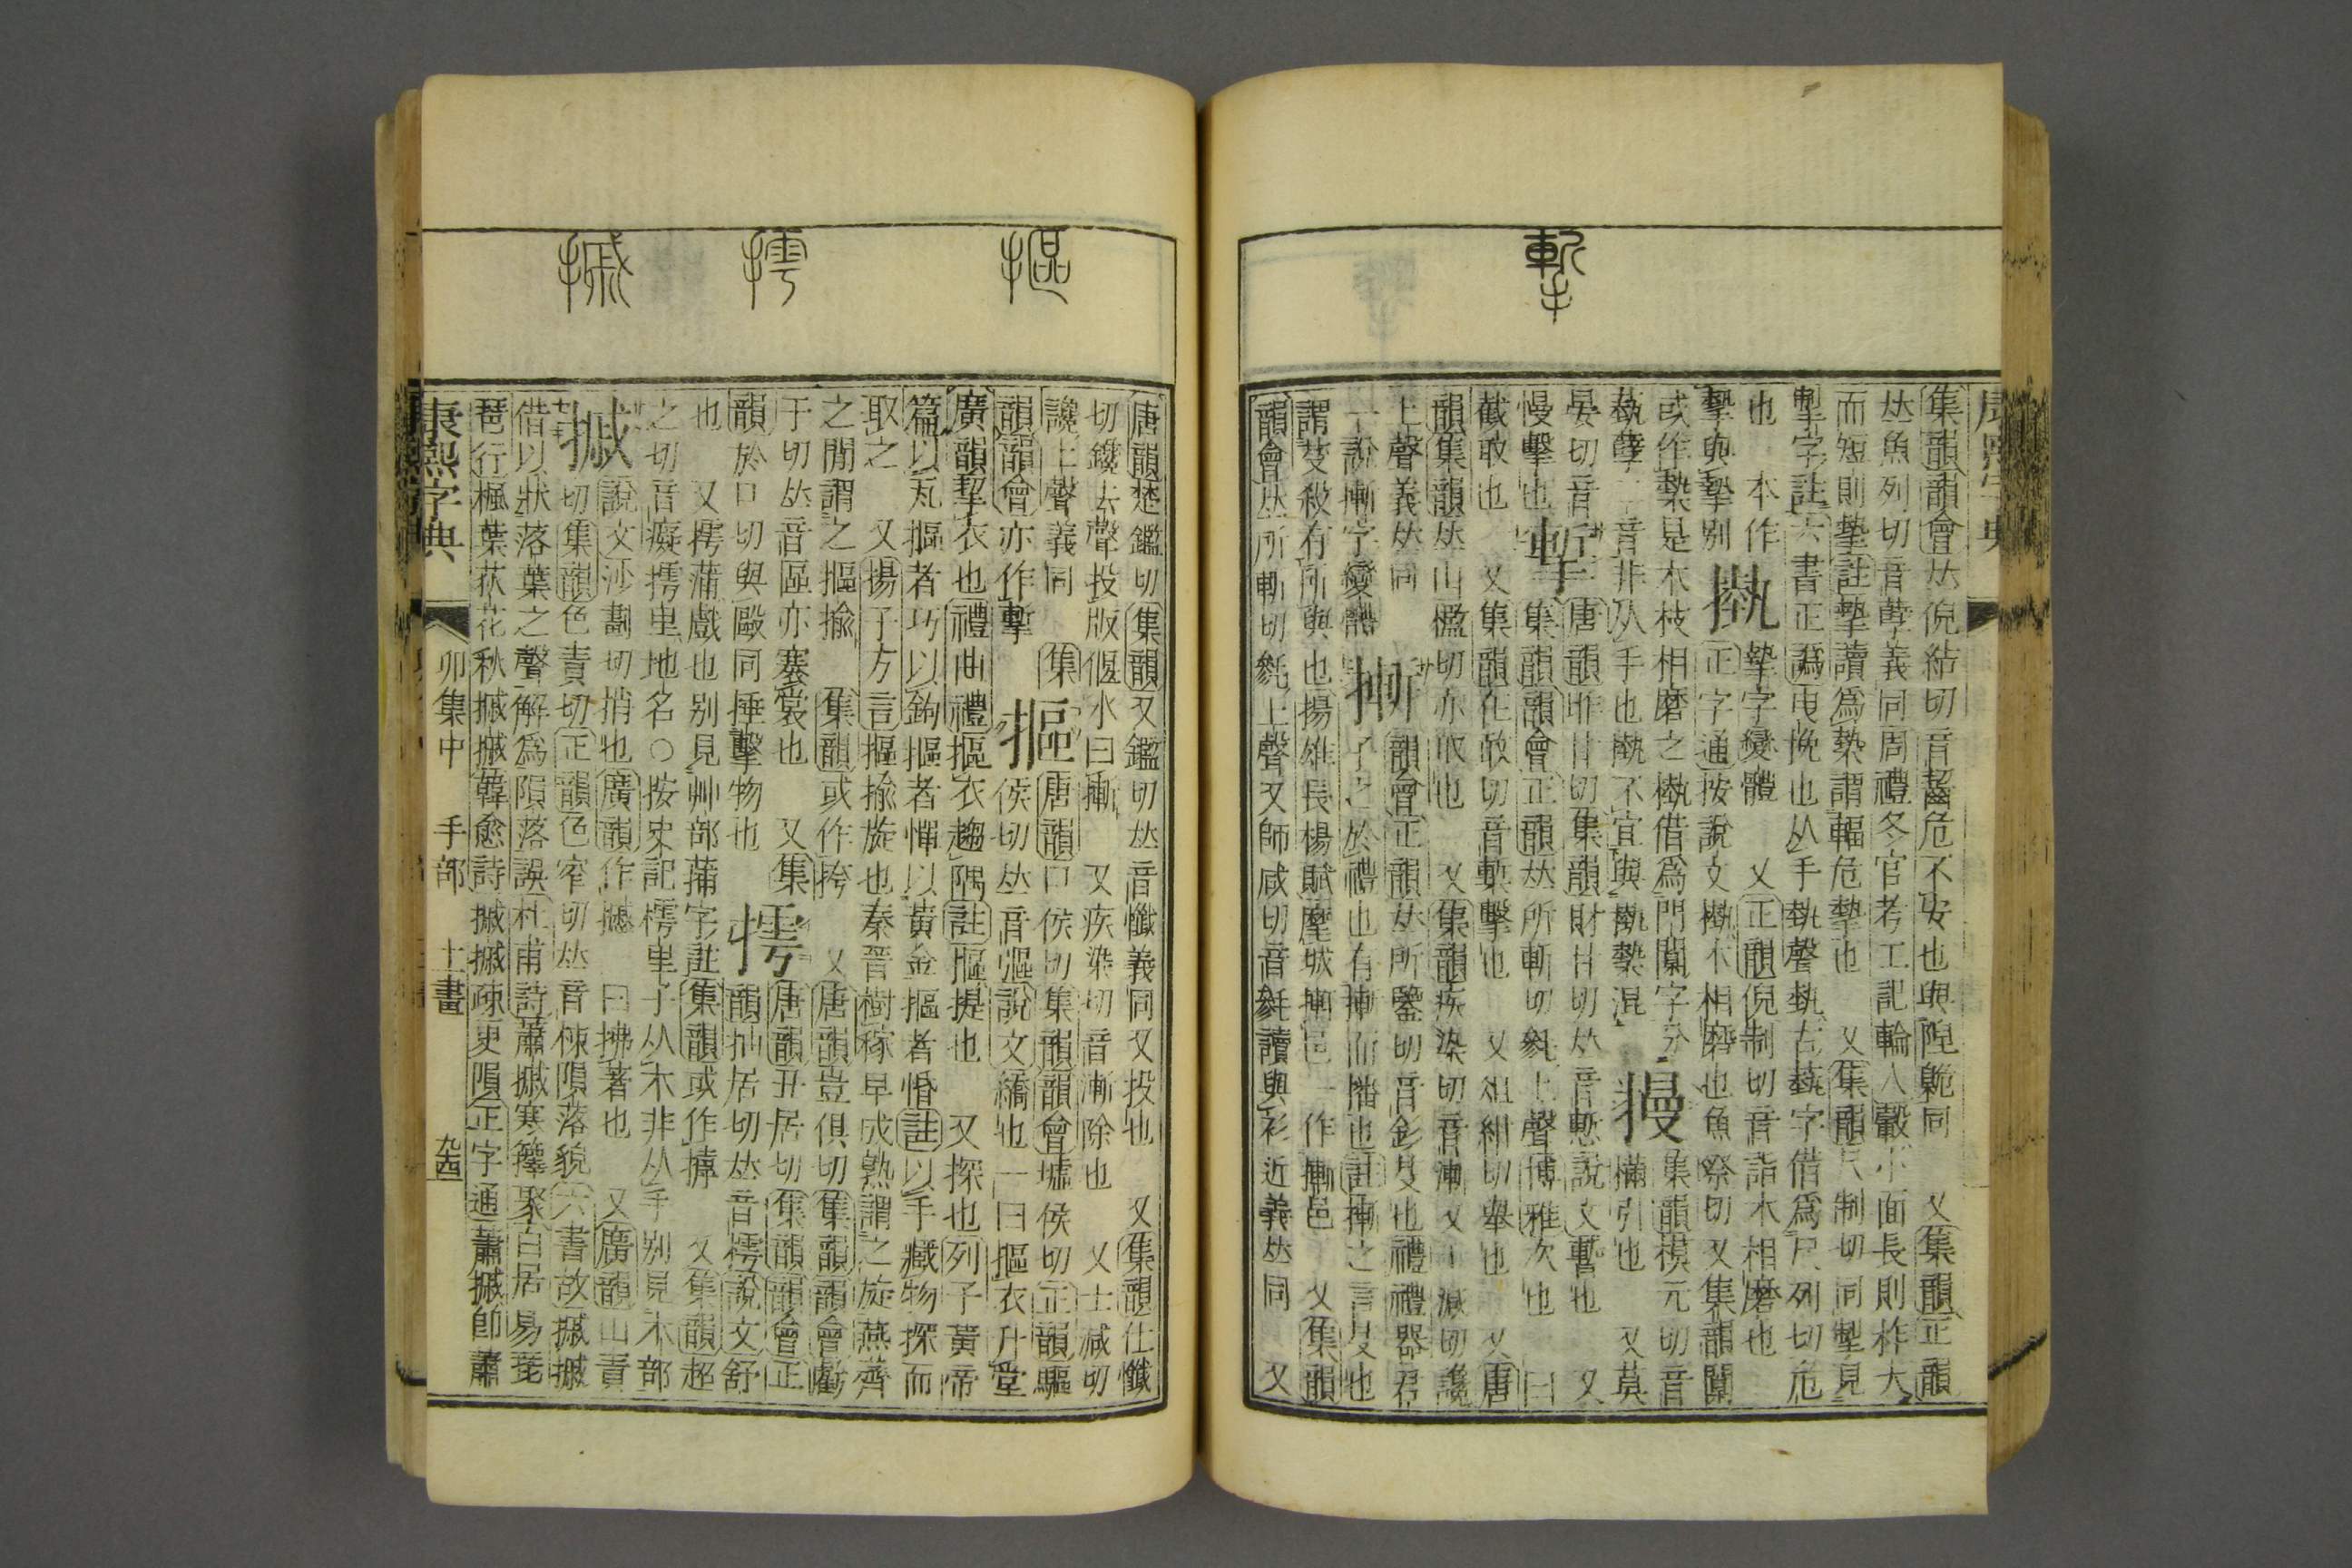 摲
集韻韻會𠀤倪結切音齧危不安也與隉臲同 又集韻正韻
𠀤魚列切音孽義同周禮冬官考工記輪人轂小而長則柞大
而短則摯註摯讀爲槷謂輻危摯也 又集韻尺制切同掣見
掣字註六書正譌曳挽也从手執聲執古藝字借爲尺列切危
也 本作㙯摯字變體 又正韻倪制切音詣木相磨也
摯與摯別正字通按說文槸木相磨也魚祭切又集韻闑
或作槷是木枝相磨之槸借爲門闑字分
執孽二音非从手也槸不宜與摯槷混 摱集韻模元切音
晏切音 摲引也 又莫
慢擊也 摲唐韻昨甘切集韻財甘切𠀤音慙說文暫也 又
集韻韻會正韻𠀤所斬切摻上聲博雅次也 一曰
截取也 又集韻在敢切音槧擊也 又俎紺切舉也 又唐
韻集韻𠀤山檻切亦取也 又集韻疾染切音漸 又士減切讒
上聲義𠀤同 摲韻會正韻𠀤所鑒切音釤芟也禮禮器君
一說摲字變體 子之於禮也有摲而播也註摲之言芟也
謂芟殺有所與也揚雄長楊賦麾城摲邑一作摲邑 又集韻
韻會𠀤所斬切摻上聲又師咸切音摻讀與衫近義𠀤同 又
摵 摴 摳
唐韻楚鑑切集韻又鑑切𠀤音懺義同又投也 又集韻仕懺
切鑱去聲投版偃水曰摲 又疾染切音漸除也 又士減切
讒上聲義同 集 摳唐韻口侯切集韻韻會墟侯切正韻驅
韻韻會亦作摮 侯切𠀤音彄說文繑也一曰摳衣升堂
廣韻挈衣也禮曲禮摳衣趨隅註摳提也 又探也列子黃帝
篇以瓦摳者巧以鉤摳者憚以黃金摳者惛註以手藏物探而
取之 又揚子方言摳揄旋也秦晉樹稼早成熟謂之旋燕齊
之閒謂之摳揄 集韻或作挎 又唐韻豈俱切集韻韻會虧
于切𠀤音區亦褰裳也 又集 摴唐韻丑居切集韻韻會正
韻於口切與毆同捶擊物也 韻抽居切𠀤音樗說文舒
也 又摴蒲戲也別見艸部蒱字註集韻或作攄 又集韻超
之切音癡摴里地名○按史記樗里子从木非从手別見木部
摵說文沙劃切捎也廣韻作摵一曰拂著也 又廣韻山責
切集韻色責切正韻色窄切𠀤音栜隕落貌六書故摵摵
借以狀落葉之聲解爲隕落誤杜甫詩蕭摵寒籜聚白居易琵
琶行楓葉荻花秋摵摵韓愈詩摵摵疎更隕正字通蕭摵卽蕭
康熙字典 卯集中 手部 十一畫 九四